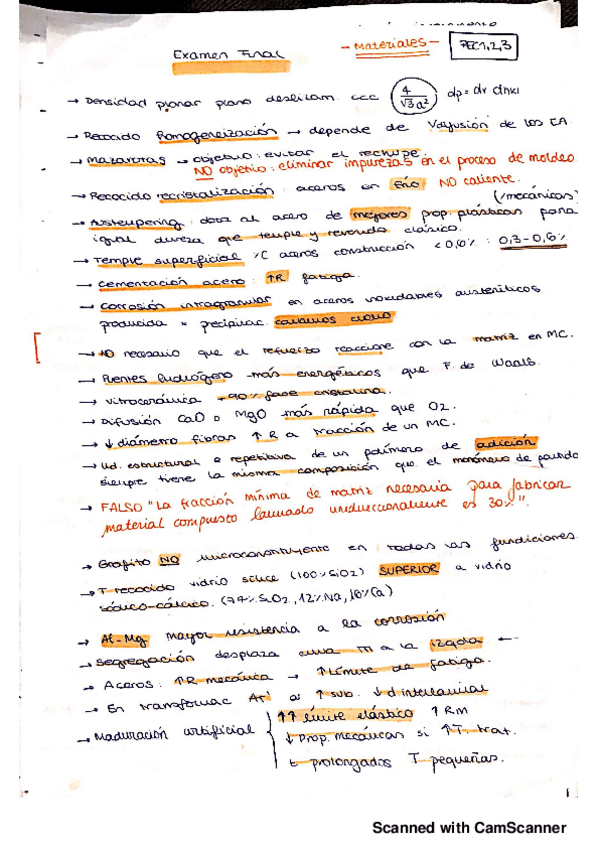 Examen Final - Materiales - PEC1,2,3
→ Densidad planar plano deslizam. ccc 4/√3a² dp = dr dhkl
→ Recocido homogeneización → depende de Vdifusión de los EA
→ Mazarotas → objetivo: evitar el rechupe.
NO objetivo: eliminar impurezas en el proceso de moldeo
→ Recocido recristalización: aceros en frío NO caliente.
(/mecánicas)
→ Austempering: dota al acero de mejores prop. plásticas para
igual dureza que temple y revenido clásico.
→ Temple superficial %C aceros construcción <0,6% : 0,3-0,6%
→ Cementación acero: ↑R fatiga.
→ Corrosión intragranular en aceros inoxidables austeníticos
producida x precipitac. carburos cromo
→ NO necesario que el refuerzo reaccione con la matriz en MC.
→ Puentes hidrógeno más energéticos que F. de Waals.
→ Vitrocerámica → 90% fase cristalina.
→ Difusión CaO o MgO más rápida que O2.
→ ↓ diámetro fibras ↑R a tracción de un MC.
→ Ud. estructural o repetitiva de un polímero de adición
siempre tiene la misma composición que el monómero de partida
→ FALSO "La fracción mínima de matriz necesaria para fabricar
material compuesto laminado unidireccionalmente es 30%".
→ Grafito NO microconstituyente en todas las fundiciones.
→ T recocido vidrio sílice (100% SiO2) SUPERIOR a vidrio
sódico-cálcico. (74% SiO2, 12% Na, 10% Ca)
→ Al-Mg mayor resistencia a la corrosión
→ Segregación desplaza curva TTT a la izqda ←
→ Aceros: ↑R mecánica → ↑Límite de fatiga.
→ En transformac Ar' al ↑ sub. ↓ d interlaminar
→ Maduración artificial { ↑↑ límite elástico ↑RM
↓ Prop. mecánicas si ↑T trat.
t prolongados T pequeñas.
Scanned with CamScanner